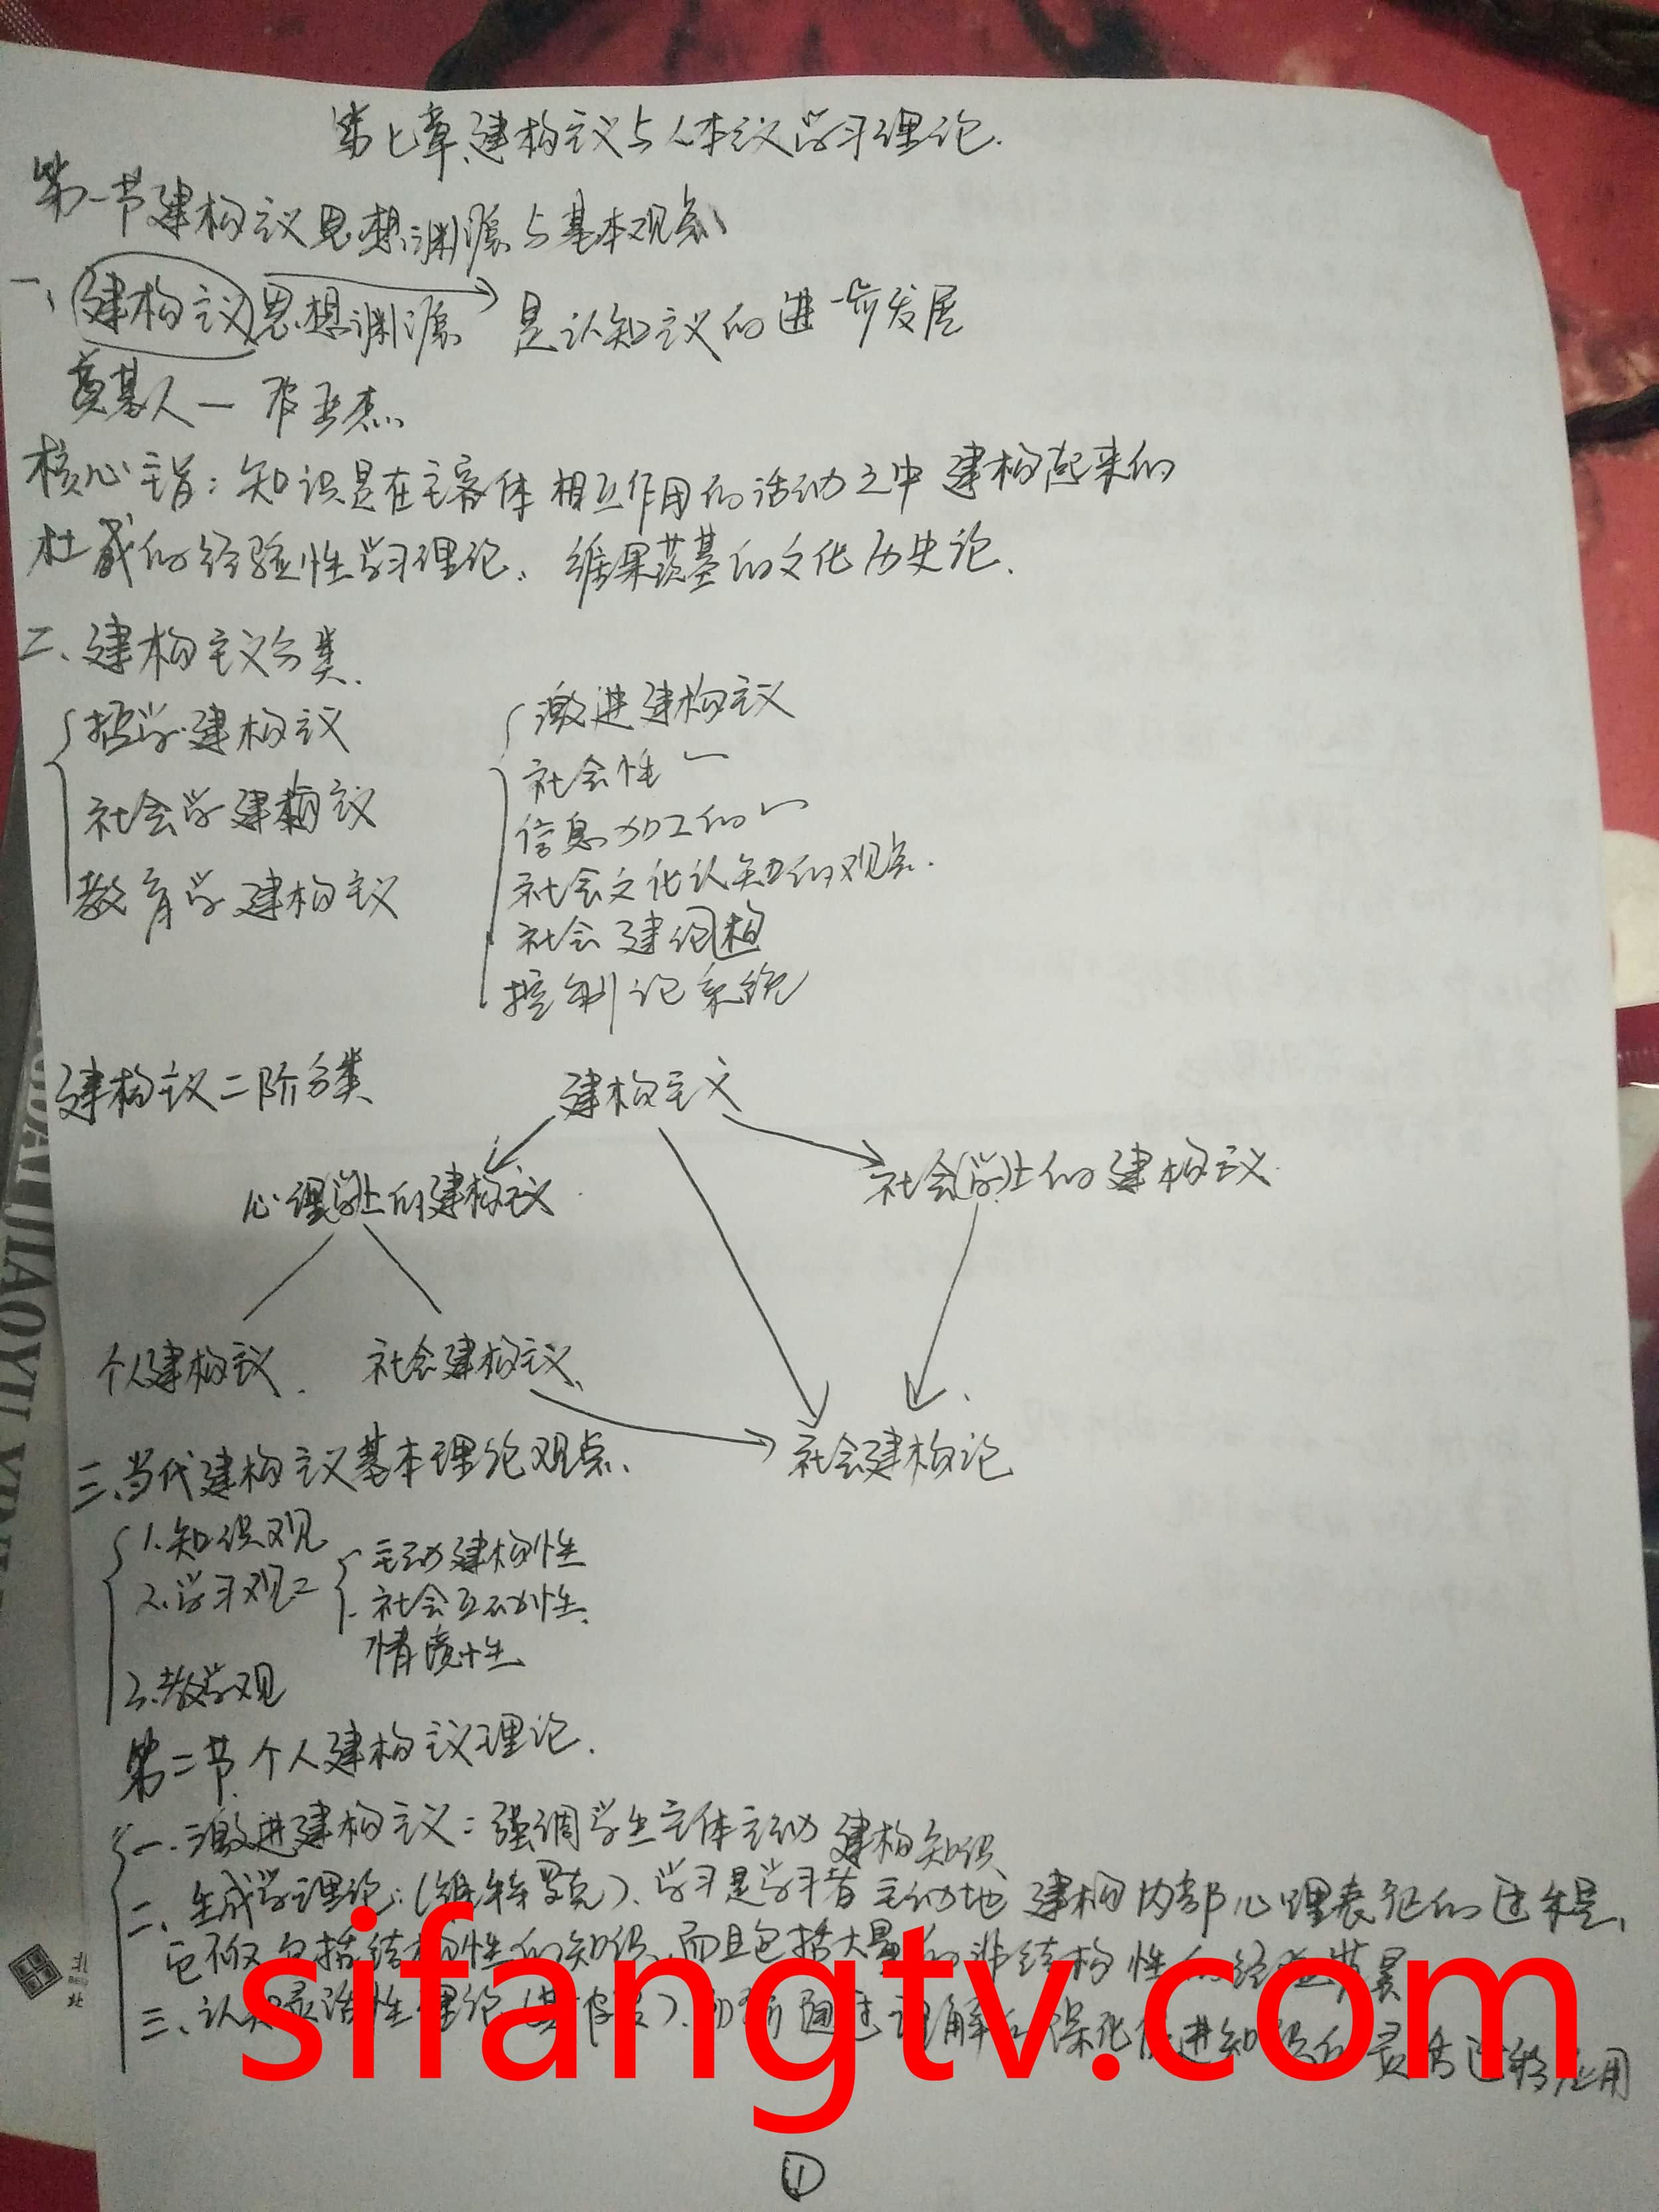 第七章、建构主义与人本主义学习理论.
第一节建构主义思想渊源与基本观点
一、建构主义思想渊源 是认知主义的进一步发展
奠基人一 皮亚杰
核心主旨:知识是在主客体相互作用的活动之中建构起来的
杜威的经验性学习理论、维果茨基的文化历史论.
二、建构主义分类.
哲学建构主义
社会学建构主义
教育学建构主义
激进建构主义
社会性~
信息加工的~
社会文化认知的观点.
社会建构论
控制论系统
建构主义二阶分类
建构主义
心理(学)上的建构主义.
社会(学)上的建构主义.
个人建构主义. 社会建构主义.
社会建构论
三、当代建构主义基本理论观点.
1.知识观
2.学习观
主动建构性
社会互动性.
情境性
3.教学观
第二节.个人建构主义理论.
一.激进建构主义:强调学生主体主动建构知识
二、生成学习理论:(维特罗克)、学习是学习者主动地建构内部心理表征的过程、
它不仅包括结构性的知识、而且包括大量的非结构性的经验背景
三、认知灵活性理论 通过理解的深化促进知识的灵活迁移应用
①
sifangtv.com